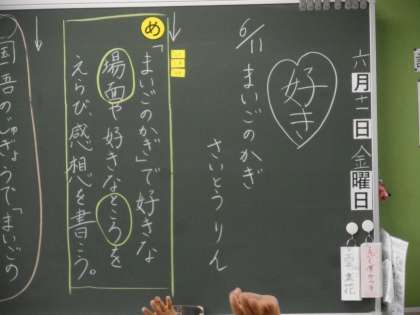 六月十一日金曜日
好き
6/11 まいごのかぎ
さいとう りん
め
「まいごのかぎ」で好きな
場面や好きなところを
えらび、感想を書こう。
国語のじゅぎょうで「まいごの